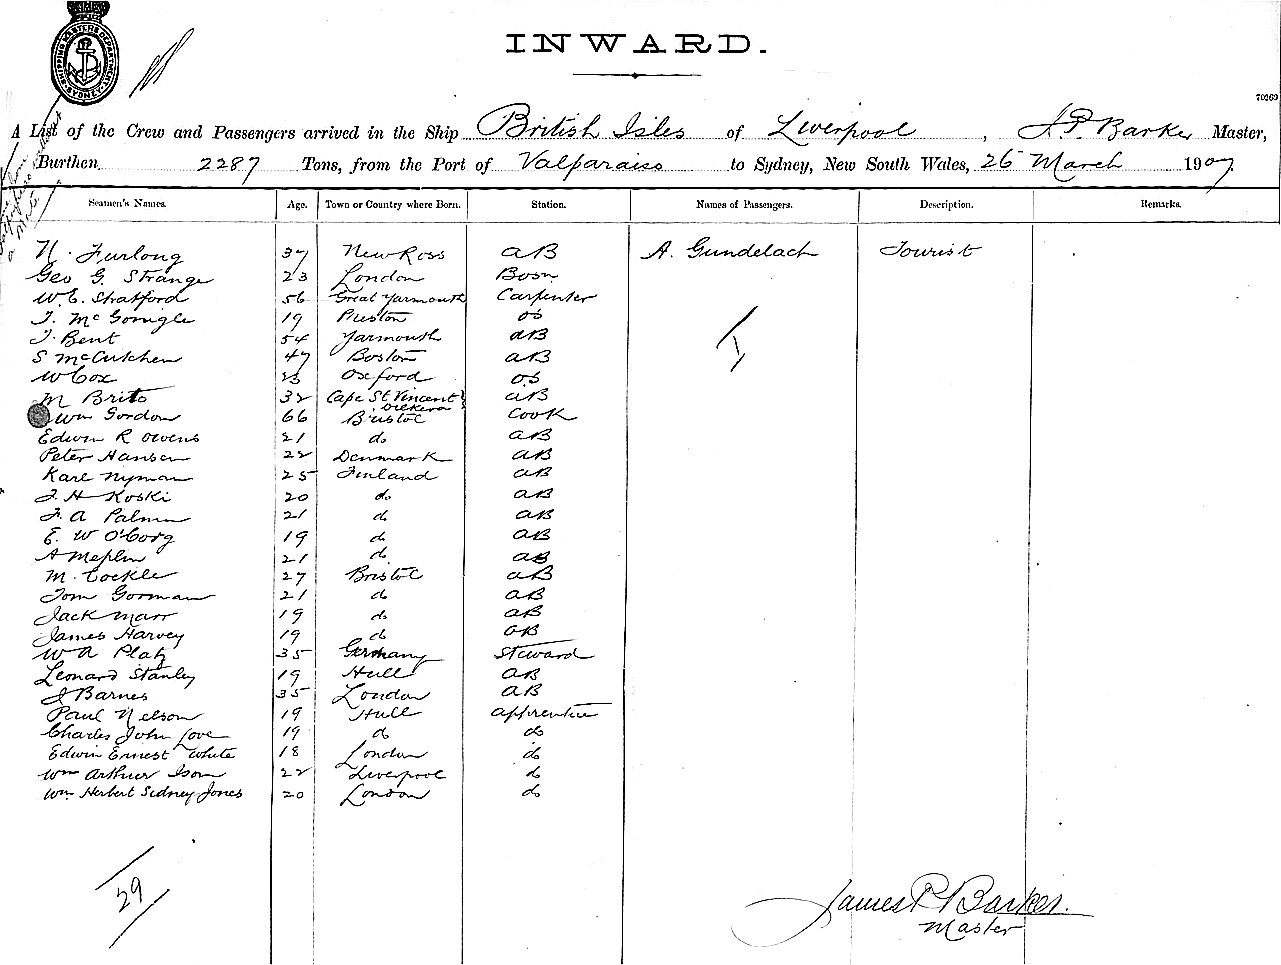 SHIPPING MASTERS DEPARTMENT SYDNEY
INWARD.
70269
A List of the Crew and Passengers arrived in the Ship British Isles of Liverpool, J.P. Barker Master,
Burthen 2287 Tons, from the Port of Valparaiso to Sydney, New South Wales, 26 March 1907.
Seamen's Names. Age. Town or Country where Born. Station. Names of Passengers. Description. Remarks.
N. Furlong 37 New Ross AB A. Gundelach Tourist
Geo G. Strange 23 London Bosn
W.E. Shatford 56 Great Yarmouth Carpenter
J. McGonigle 19 Preston OS
J. Bent 54 Yarmouth AB 1
S McCutchen 47 Boston AB
W Cox Oxford OS
M Brito 32 Cape St Vincent AB
Wm Gordon 66 Bristol Cook
Edwin R Owens 21 do AB
Peter Hansen 22 Denmark AB
Karl Nyman 25 Finland AB
J. H Koski 20 do AB
J. A Palmn 21 do AB
E. W 19 do AB
A 21 do AB
M. Cockle 27 Bristol AB
Tom Gorman 21 do AB
Jack Marr 19 do AB
James Harvey 19 do AB
W A Platz 35 Germany Steward
Leonard Stanley 19 Hull AB
J Barnes 35 London AB
Paul Nelson 19 Hull Apprentice
Charles John Love 19 do do
Edwin Ernest White 18 London do
Wm Arthur Ison 22 Liverpool do
Wm Herbert Sidney Jones 20 London do
29
James P Barker.
Master